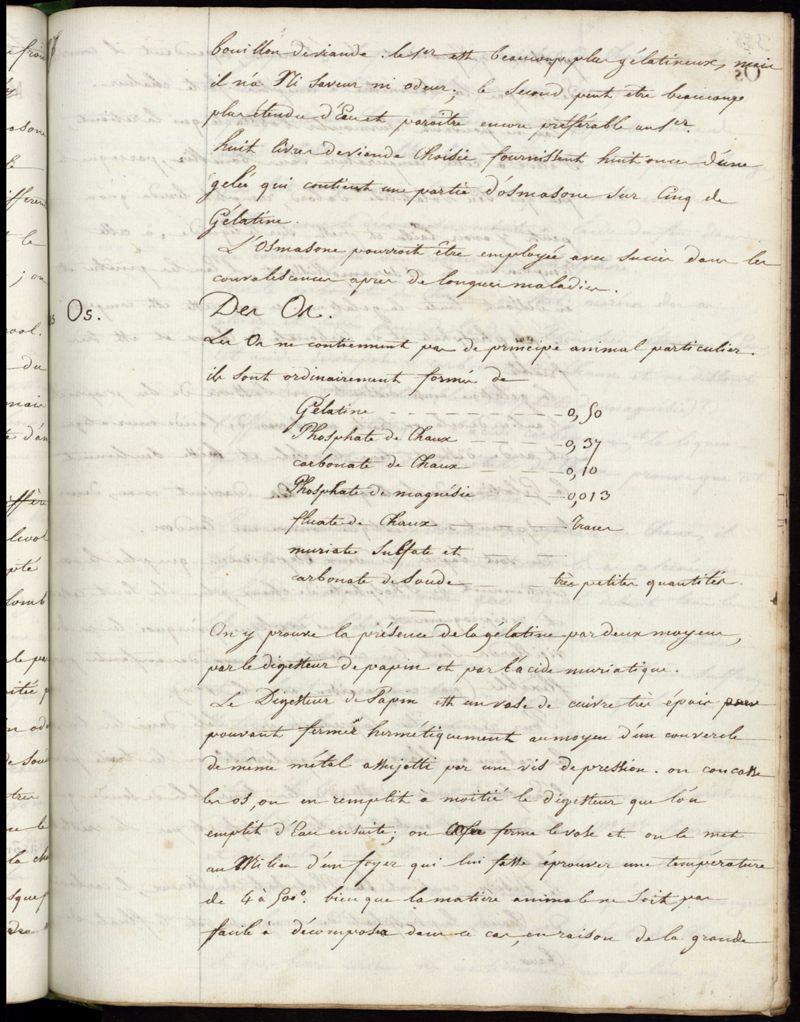 bouillon de viande. le 1er est beaucoup plus gélatineux, mais
il n'a Ni saveur ni odeur; le second peut être beaucoup
plus étendu d'Eau et paroitre encore préférable au 1er.
huit livres de viande choisie fournissent huit onces d'une
gelée qui contient une partie d'osmasone sur cinq de
Gélatine.
L'Osmasone pourroit être employée avec succès dans les
convalescences après de longues maladies.
Os.
Des Os.
Les Os ne contiennent pas de principe animal particulier.
ils sont ordinairement formés de
Gélatine - - - - - - 0,50
Phosphate de Chaux - - - 0,37
carbonate de Chaux - - 0,10
Phosphate de magnésie - 0,013
fluate de Chaux - - - traces
muriate Sulfate et - - -
carbonate de Soude - - - très petites quantités.
On y prouve la présence de la gélatine par deux moyens,
par le digesteur de papin et par l'acide muriatique.
Le Digesteur de Papin est un vase de cuivre très épais
pouvant fermer hermétiquement au moyen d'un couvercle
de même métal assujetti par une vis de pression. on concasse
les os, on en remplit à moitié le digesteur que l'on
emplit d'Eau ensuite; on ferme le vase et on le met
au Milieu d'un foyer qui lui fasse éprouver une température
de 4 à 500°. bien que la matière animale ne soit pas
facile à décomposer dans ce cas, en raison de la grande